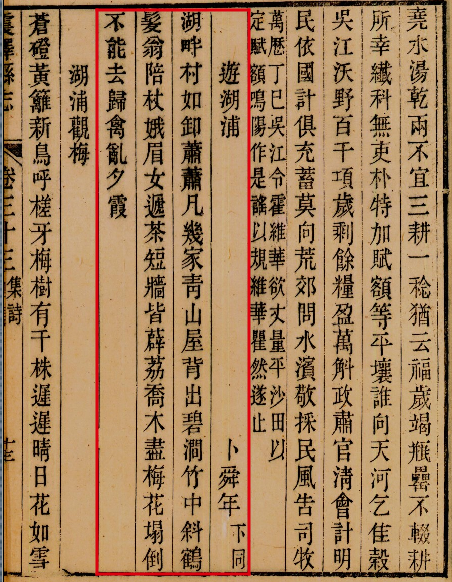 堯水湯乾兩不宜三耕一稔猶云福歲竭瓶罍不輟耕
所幸纖科無吏朴特加賦額等平壤誰向天河乞佳穀
吳江沃野百千項歲剩餘糧盈萬斛政肅官淸會計明
民依國計俱充蓄莫向荒郊問水濱敬採民風告司牧
萬歷丁巳吳江令霍維華欲丈量平沙田以
定賦額鳴陽作是謠以規維華瞿然遂止
遊湖浦 卜舜年 下同
湖畔村如卸蕭蕭凡幾家靑山屋背出碧澗竹中斜鶴
髮翁陪杖娥眉女遞茶短牆皆薜荔喬木盡梅花塌倒
不能去歸禽亂夕霞
湖浦觀梅
蒼磴黃籬新鳥呼槎牙梅樹有千株遲遲晴日花如雪
震澤縣志 卷三十三 集詩